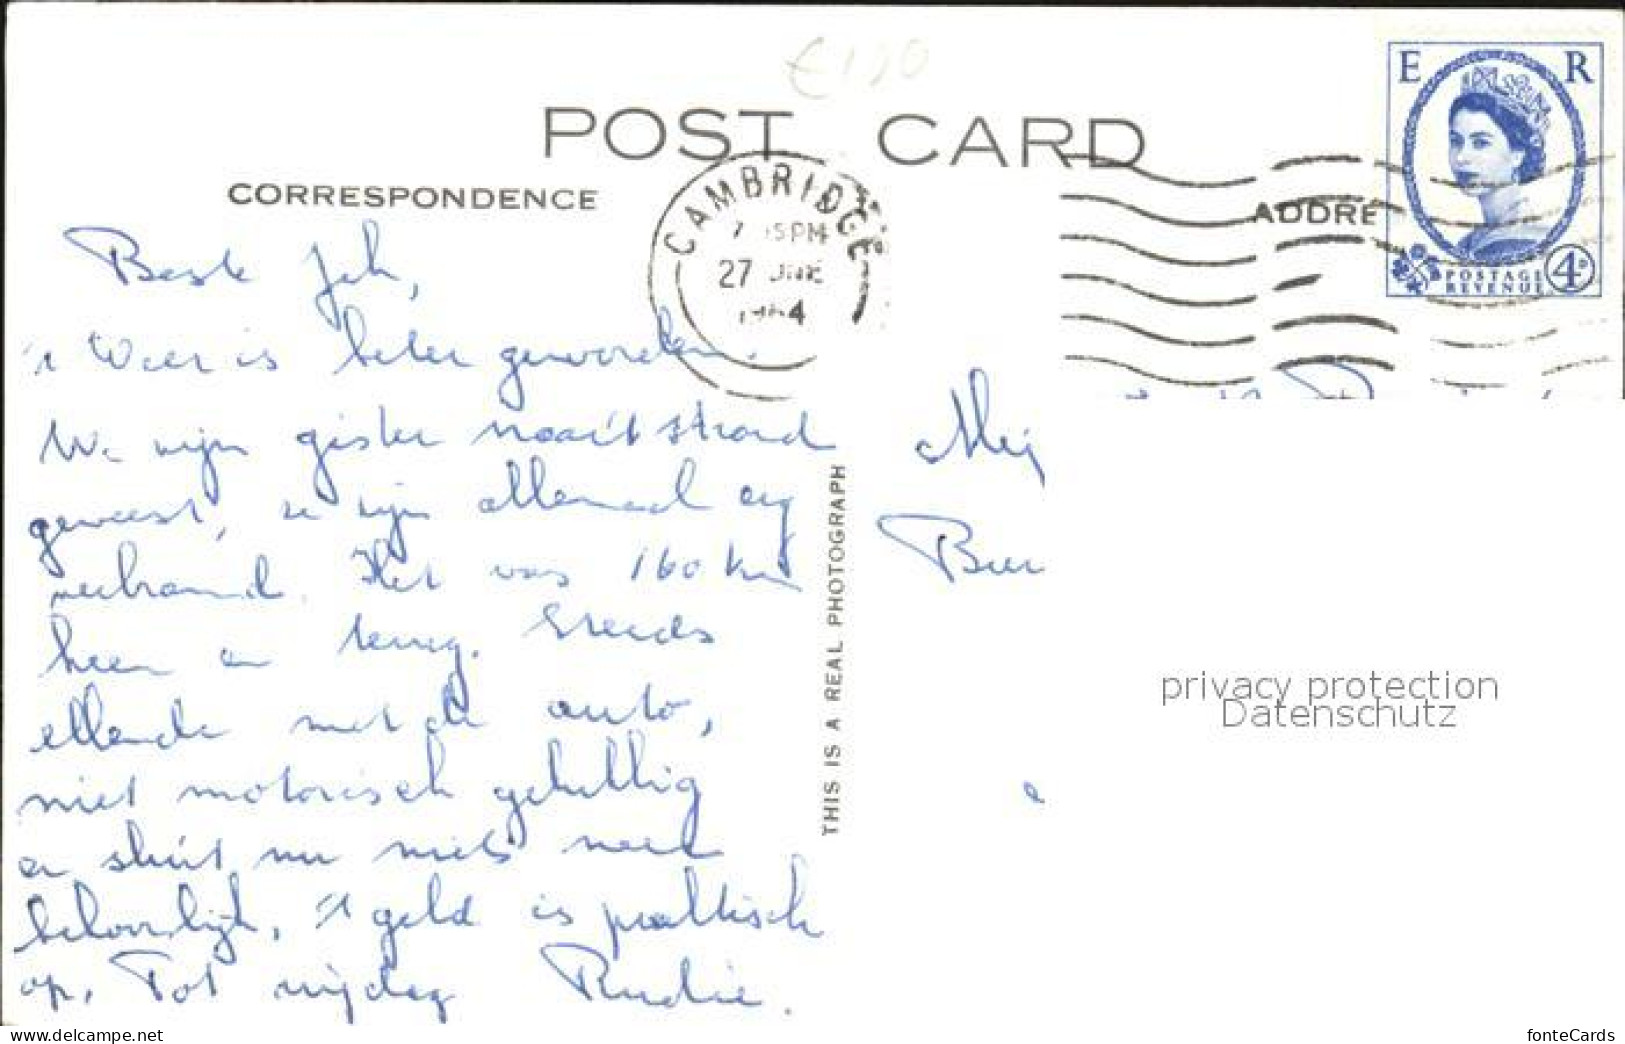 €120
POST CARD
CORRESPONDENCE
ADDRE
CAMBRIDGE
PM
27 JNE
E R
POSTAGE
REVENUE
4D
Beste Joh,
't Weer is beter geworden.
We zijn gister naar 't strand
geweest, ze zijn allemaal erg
verbrand. Het was 160 km
heen en terug. Steeds
ellende met de auto,
niet motorisch gelukkig
en sluit nu niets meer
behoorlijk, 't geld is praktisch
op. Tot vrijdag Rudie.
THIS IS A REAL PHOTOGRAPH
Mej
privacy protection
Datenschutz
www.delcampe.net
fonteCards